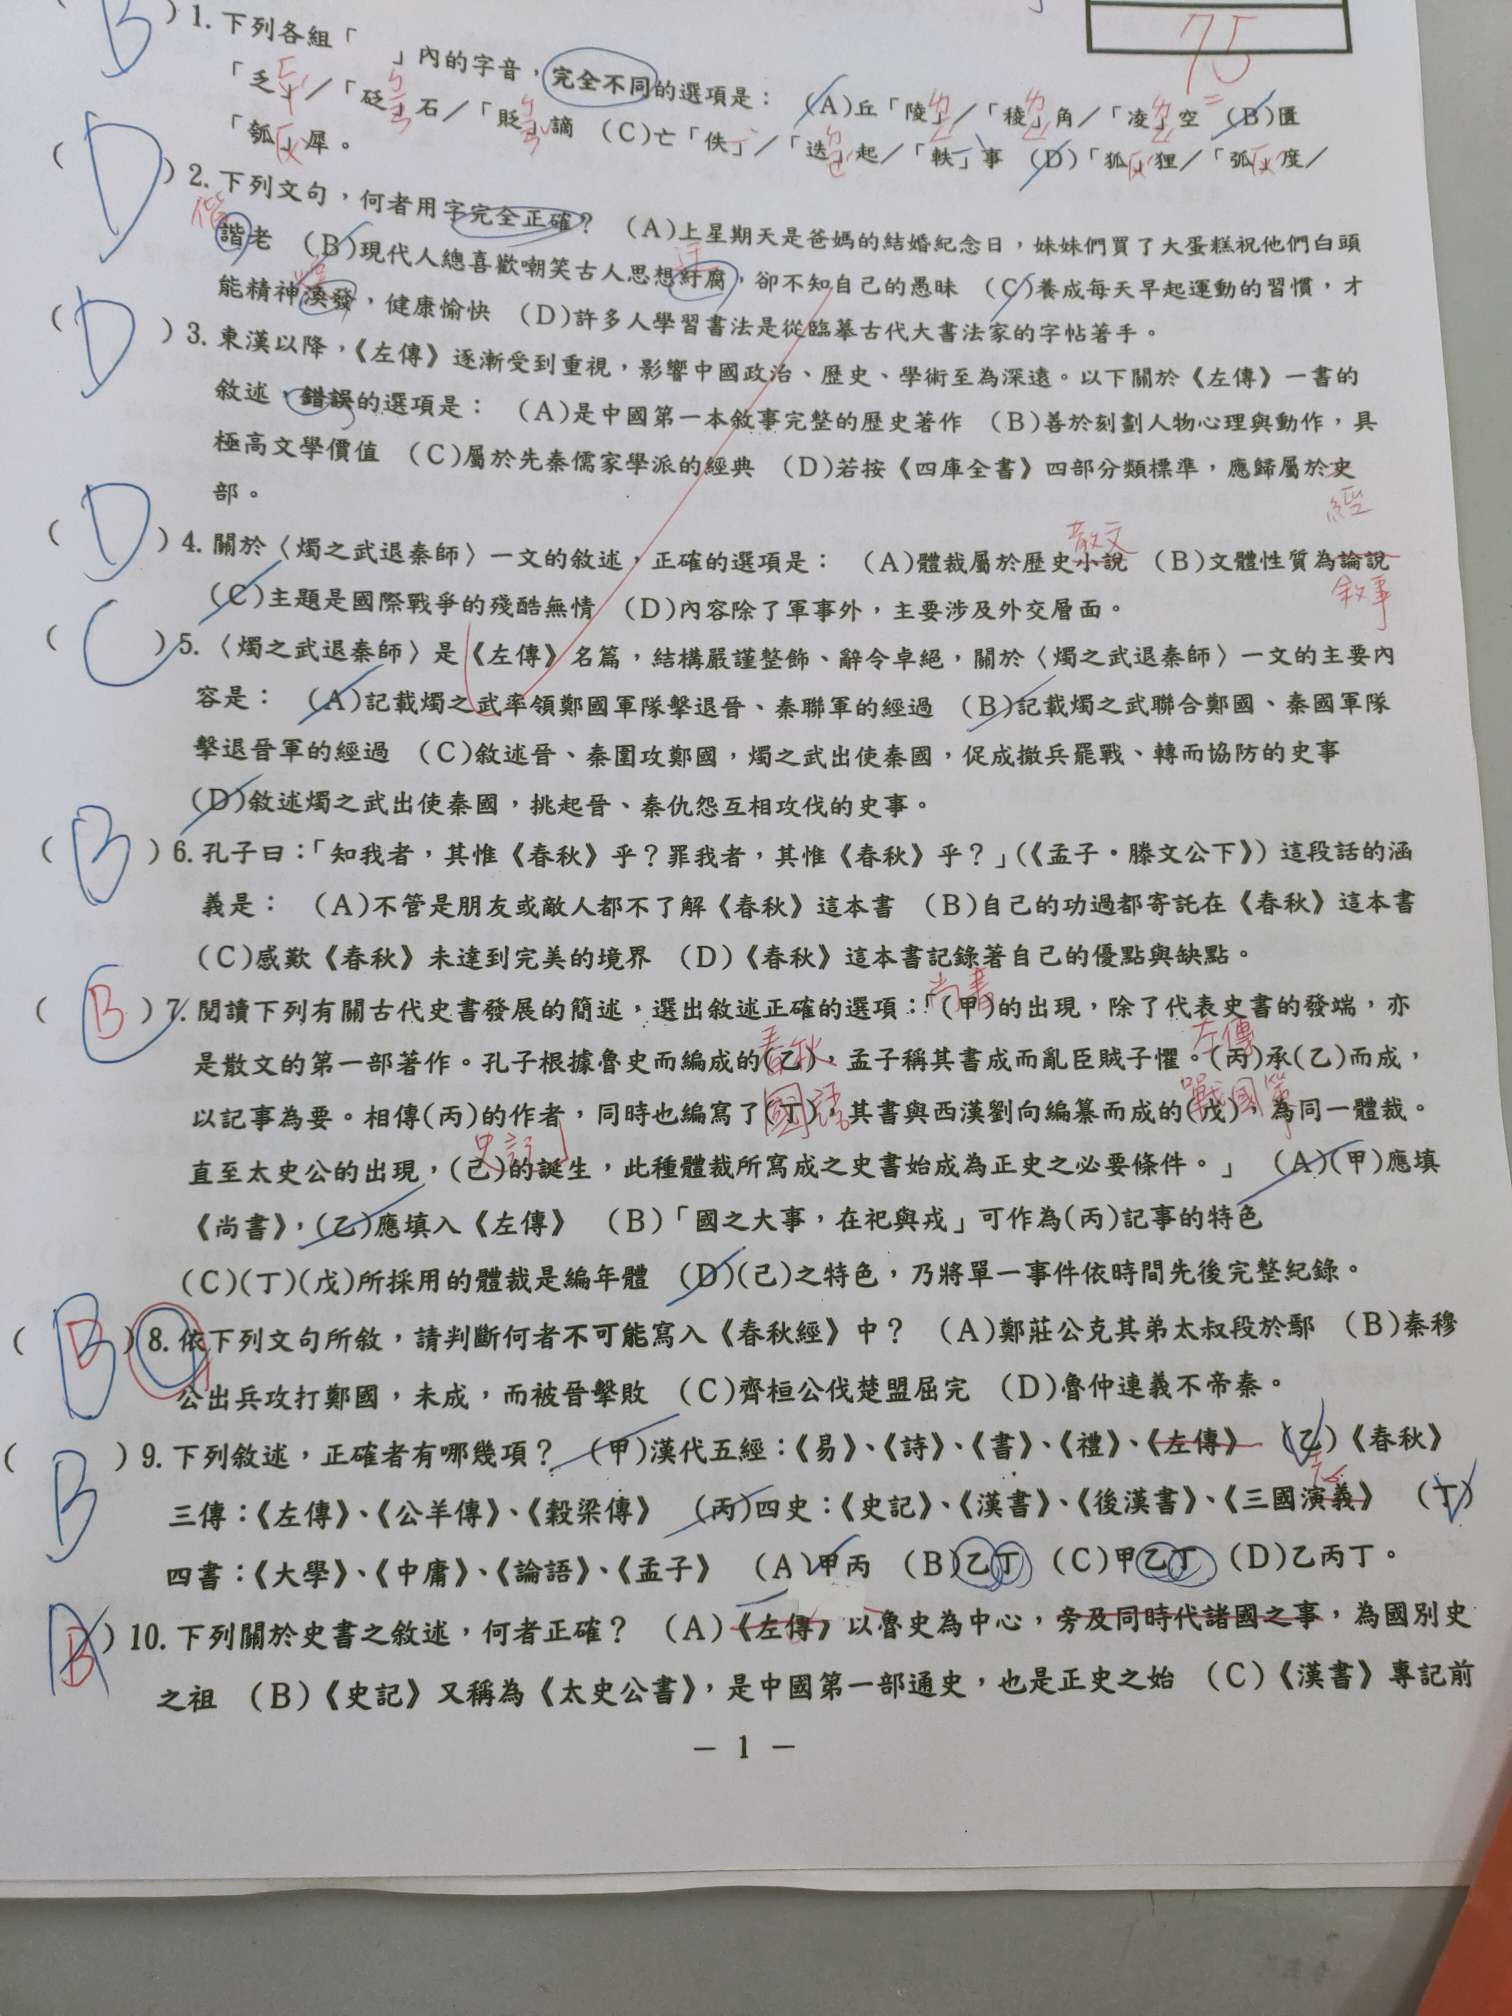 75
( B ) 1. 下列各組「 」內的字音，完全不同的選項是： (A)丘「陵」／「稜」角／「凌」空 (B)匱
「乏」／「砭」石／「貶」謫 (C)亡「佚」／「迭」起／「軼」事 (D)「狐」狸／「弧」度／
「瓠」犀。
( D ) 2. 下列文句，何者用字完全正確？ (A)上星期天是爸媽的結婚紀念日，妹妹們買了大蛋糕祝他們白頭
偕
諧老 (B)現代人總喜歡嘲笑古人思想紆腐，卻不知自己的愚昧 (C)養成每天早起運動的習慣，才
能精神渙發，健康愉快 (D)許多人學習書法是從臨摹古代大書法家的字帖著手。
( D ) 3. 東漢以降，《左傳》逐漸受到重視，影響中國政治、歷史、學術至為深遠。以下關於《左傳》一書的
敘述，錯誤的選項是： (A)是中國第一本敘事完整的歷史著作 (B)善於刻劃人物心理與動作，具
極高文學價值 (C)屬於先秦儒家學派的經典 (D)若按《四庫全書》四部分類標準，應歸屬於史
部。
經
散文
( D ) 4. 關於〈燭之武退秦師〉一文的敘述，正確的選項是： (A)體裁屬於歷史小說 (B)文體性質為論說
敘事
(C)主題是國際戰爭的殘酷無情 (D)內容除了軍事外，主要涉及外交層面。
( C ) 5. 〈燭之武退秦師〉是《左傳》名篇，結構嚴謹整飾、辭令卓絕，關於〈燭之武退秦師〉一文的主要內
容是： (A)記載燭之武率領鄭國軍隊擊退晉、秦聯軍的經過 (B)記載燭之武聯合鄭國、秦國軍隊
擊退晉軍的經過 (C)敘述晉、秦圍攻鄭國，燭之武出使秦國，促成撤兵罷戰、轉而協防的史事
(D)敘述燭之武出使秦國，挑起晉、秦仇怨互相攻伐的史事。
( B ) 6. 孔子曰：「知我者，其惟《春秋》乎？罪我者，其惟《春秋》乎？」(《孟子・滕文公下》) 這段話的涵
義是： (A)不管是朋友或敵人都不了解《春秋》這本書 (B)自己的功過都寄託在《春秋》這本書
(C)感歎《春秋》未達到完美的境界 (D)《春秋》這本書記錄著自己的優點與缺點。
尚書
( B ) 7. 閱讀下列有關古代史書發展的簡述，選出敘述正確的選項：「(甲)的出現，除了代表史書的發端，亦
春秋 左傳
是散文的第一部著作。孔子根據魯史而編成的(乙)，孟子稱其書成而亂臣賊子懼。(丙)承(乙)而成，
國語 戰國策
以記事為要。相傳(丙)的作者，同時也編寫了(丁)，其書與西漢劉向編纂而成的(戊)，為同一體裁。
史記
直至太史公的出現，(己)的誕生，此種體裁所寫成之史書始成為正史之必要條件。」 (A)(甲)應填
《尚書》，(乙)應填入《左傳》 (B)「國之大事，在祀與戎」可作為(丙)記事的特色
(C)(丁)(戊)所採用的體裁是編年體 (D)(己)之特色，乃將單一事件依時間先後完整紀錄。
( B ) 8. 依下列文句所敘，請判斷何者不可能寫入《春秋經》中？ (A)鄭莊公克其弟太叔段於鄢 (B)秦穆
公出兵攻打鄭國，未成，而被晉擊敗 (C)齊桓公伐楚盟屈完 (D)魯仲連義不帝秦。
( B ) 9. 下列敘述，正確者有哪幾項？ (甲)漢代五經：《易》、《詩》、《書》、《禮》、《左傳》 (乙)《春秋》
志
三傳：《左傳》、《公羊傳》、《穀梁傳》 (丙)四史：《史記》、《漢書》、《後漢書》、《三國演義》 (丁)
四書：《大學》、《中庸》、《論語》、《孟子》 (A)甲丙 (B)乙丁 (C)甲乙丁 (D)乙丙丁。
( B ) 10. 下列關於史書之敘述，何者正確？ (A)《左傳》以魯史為中心，旁及同時代諸國之事，為國別史
之祖 (B)《史記》又稱為《太史公書》，是中國第一部通史，也是正史之始 (C)《漢書》專記前
— 1 —